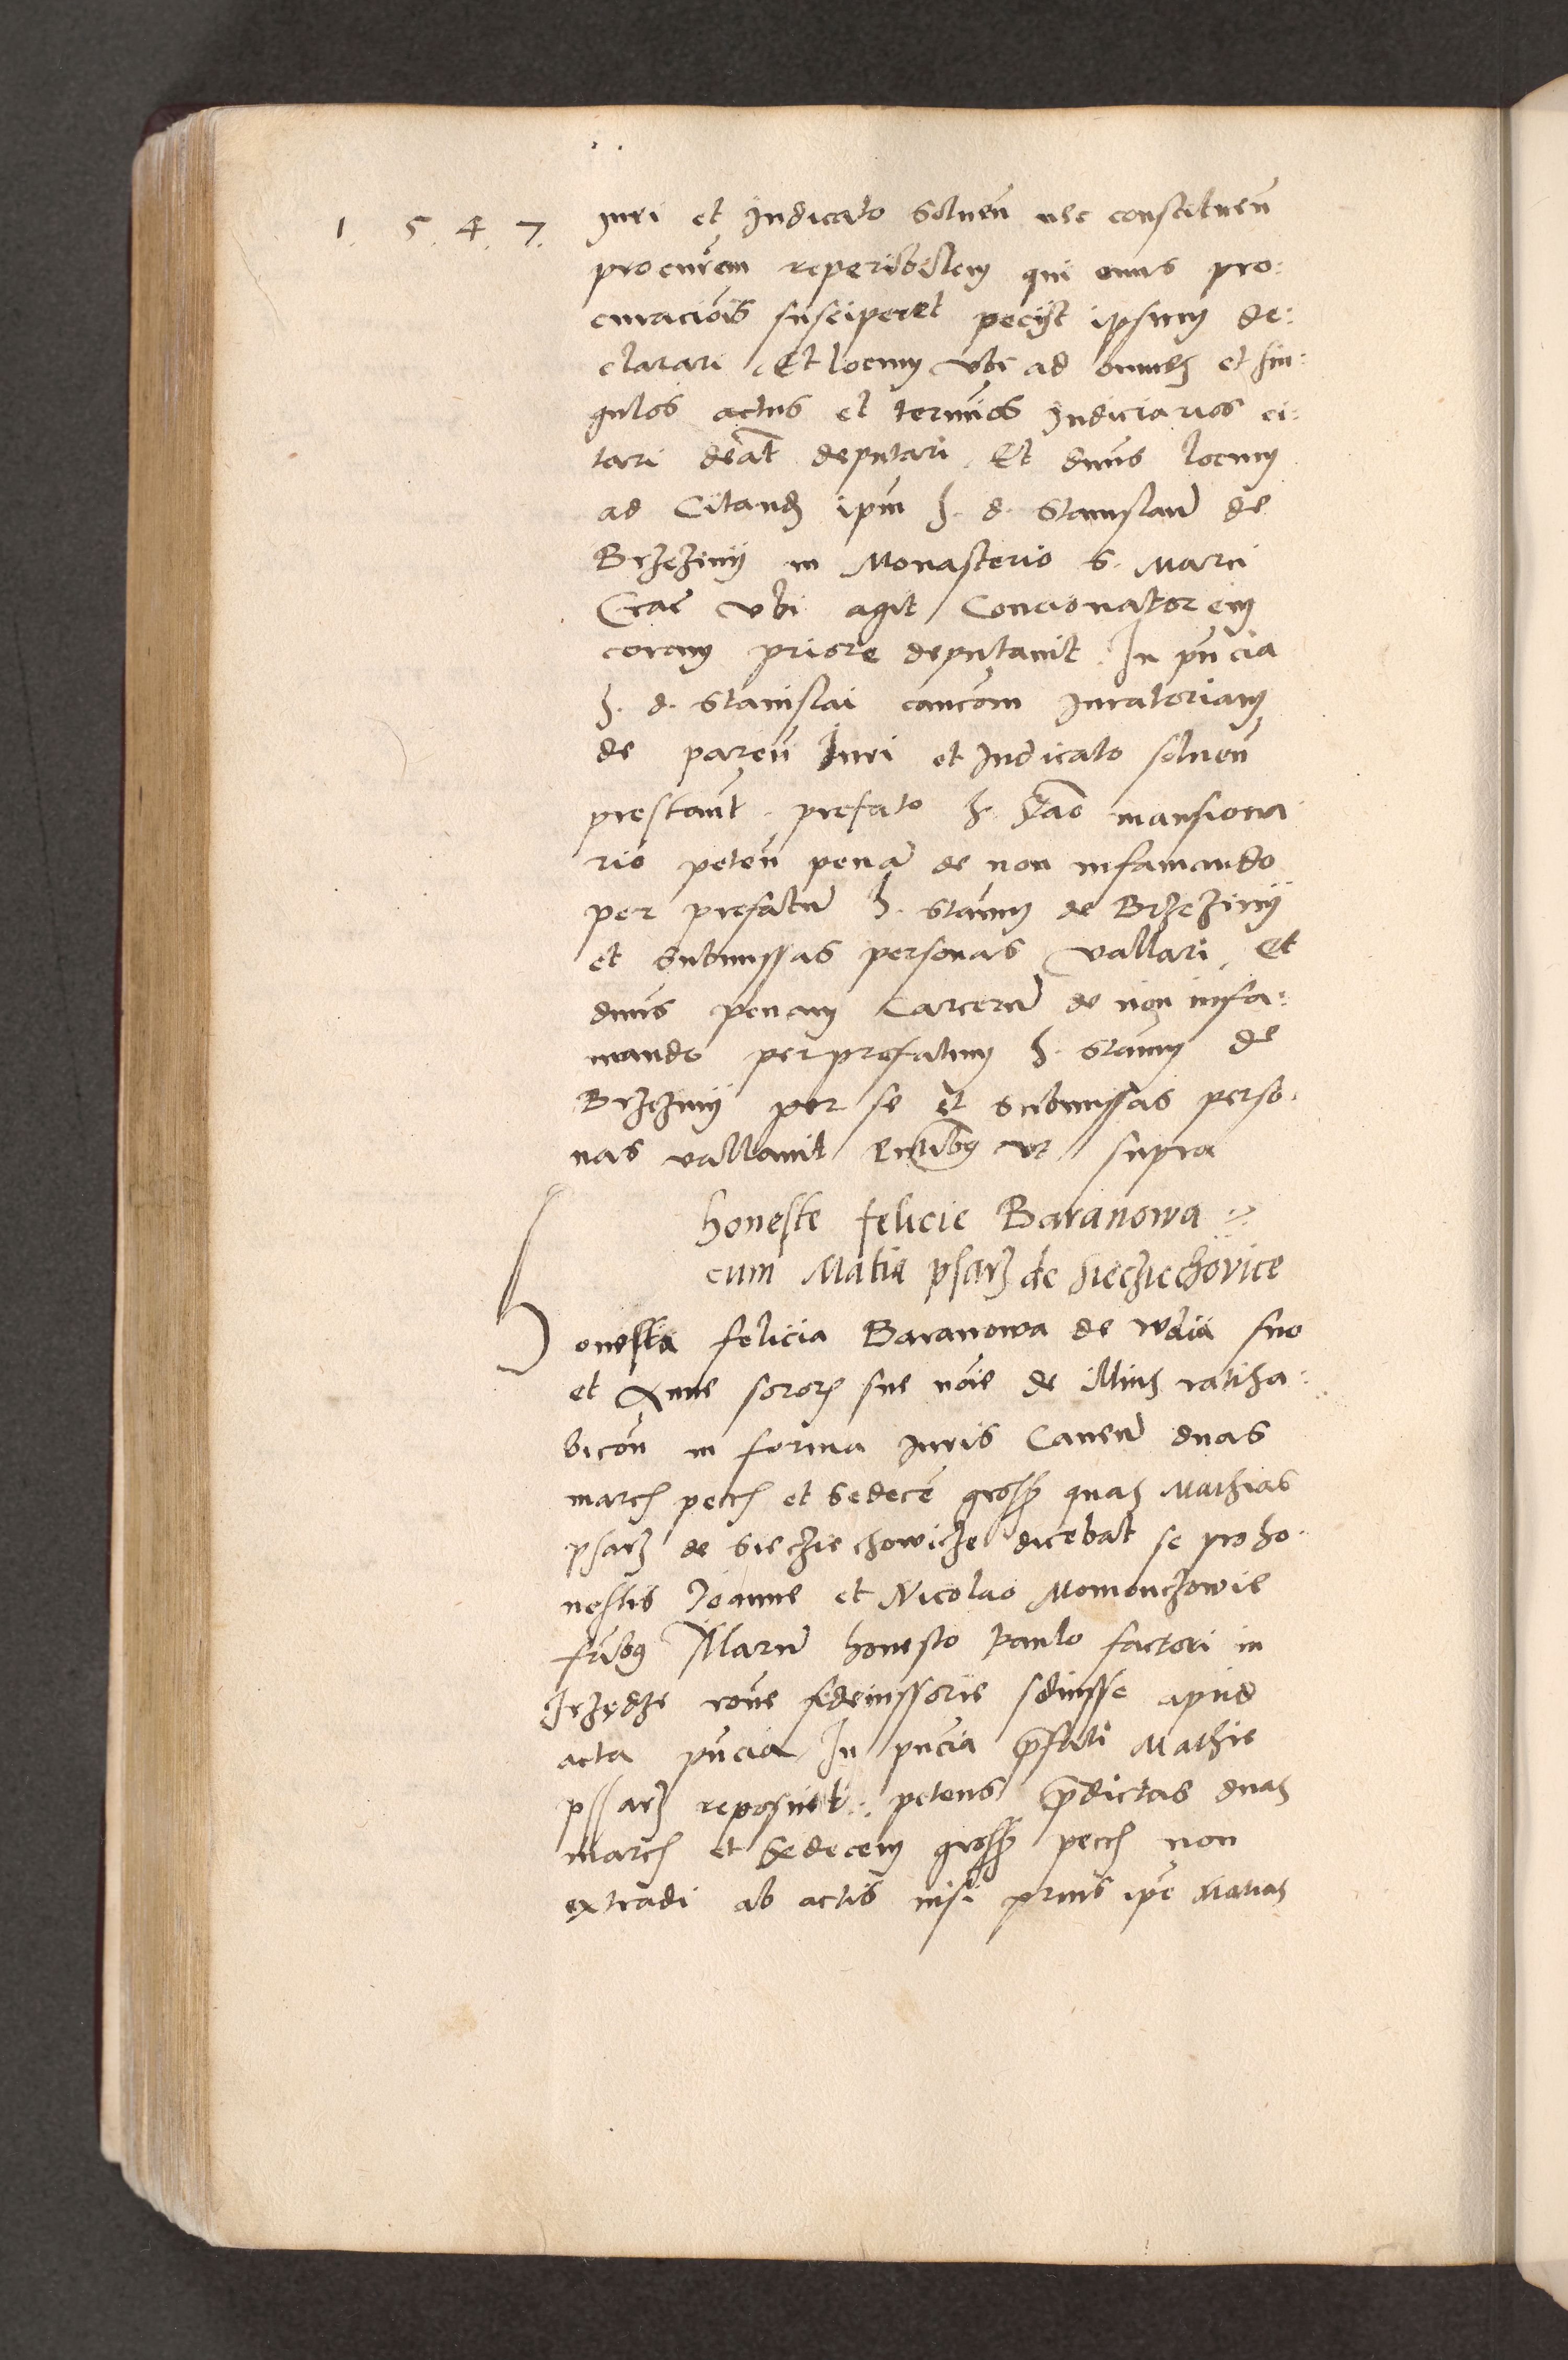 1. 5. 4. 7.
Iuri et Iudicato soluen nec constituen
procurem reperibilem qui onus pro:
curacois susciperet peciit ipsum de:
clarari Et locum vbi ad omnes et sin:
gulos actus et termios Iudiciarios ci:
tari debeat deputari. Et dnus locum
ad Citand ipm h. d. Stanislau de
Brzeziny in Monasterio S. Marci
Crac vbi agit Concionatorem
coram priore deputauit. In pncia
h. d. Stanislai caucom Iuratoriam
de paren Iuri et Iudicato soluen
prestauit. prefato h. mansiona
rio peten pena de non infamando
per prefatu h. Staum de Brzeziny
et submissas personas vallari. Et
dnus penam Carceru de non infa:
mando per prefatum h. Staum de
Brzeziny per se et submissas perso.
nas vallauit vt supra
honeste felicie Baranowa
cum Matia psarz de Siechiechovice
Honesta felicia Baranowa de suo
et Anne soror sue noie de illius ratiha:
bicon in forma Iuris Caueu duas
march pecch et sedece gross quas Mathias
psarz de Siechiechowicze dicebat se pro ho.
nestis Joanne et Nicolao Momonchowie
fribus honesto Paulo factori in
roue fideiussorie soluisse apud
acta pncia In pncia prefati Mathie
pssarz reposuit. petens predictas duas
march et Sedecem gross pecch non
extradi ab actis nisi prius ipe Matias